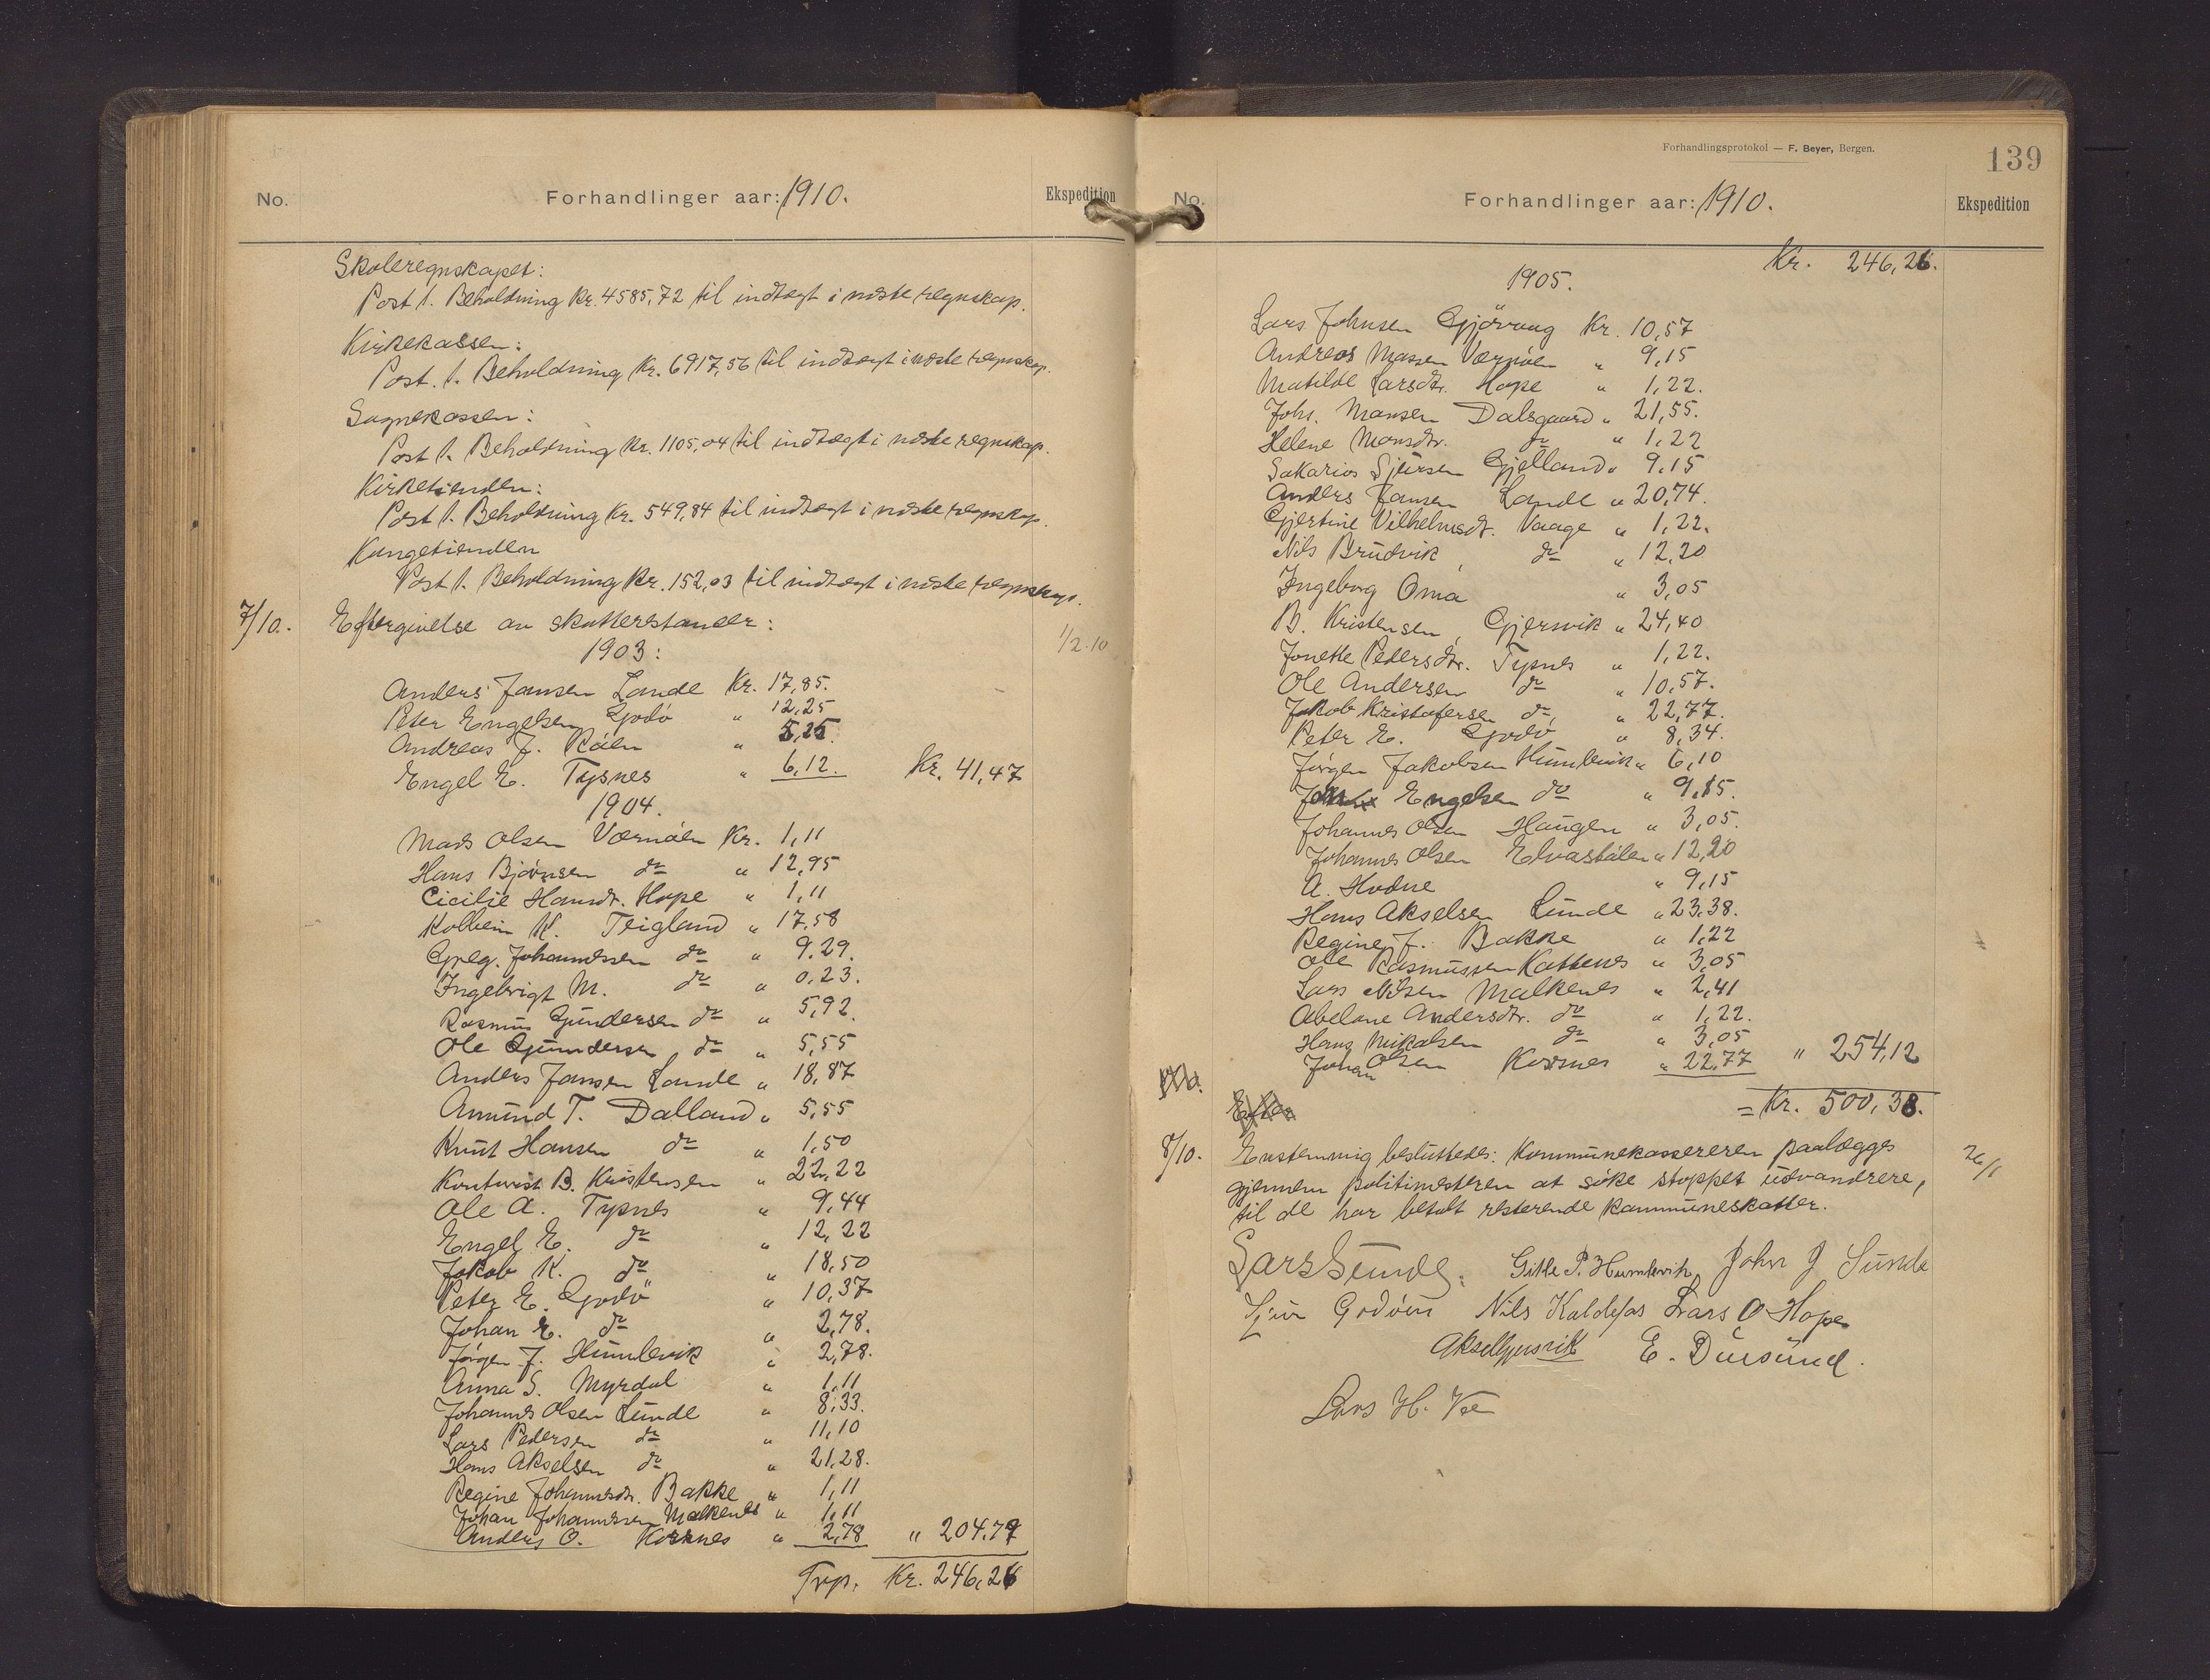 No. Forhandlinger aar: 1910. Ekspedition
Skoleregnskapet:
Post 1. Beholdning Kr. 4585,72 til indtægt i næste regnskap.
Kirkekassen:
Post. 1. Beholdning Kr. 6917,56 til indtægt i næste regnskap.
Sognekassen:
Post 1. Beholdning Kr. 1105,04 til indtægt i næste regnskap.
Kirketienden:
Post 1. Beholdning Kr. 549,84 til indtægt i næste regnskap.
Kongetienden
Post 1. Beholdning Kr. 152,03 til indtægt i næste regnskap.
7/10. Eftergivelse av skatterstanser: 1/2.10
1903:
Anders Jansen Lande Kr. 17,85.
Peter Engelsen Godö " 12,25
Andreas J. Råen " 5,25.
Engel E. Tysnes " 6,12. Kr. 41,47
1904.
Mads Olsen Værnöen Kr. 1,11
Hans Björnsen do " 12,95
Cicilie Hansdr. Hope " 1,11
Kolbein K. Teigland " 17,58
Greg. Johannessen do " 9,29.
Ingebrigt M. do " 0,23.
Rasmus Gundersen do " 5,92.
Ole Gundersen do " 5,55
Anders Jansen Lande " 18,87
Amund T. Dalland " 5,55
Knut Hansen do " 1,50
B. Kristensen " 22,22
Ole A. Tysnes " 9,44
Engel E. do " 12,22
Jakob K. do " 18,50
Peter E. Godö " 10,37
Johan E. do " 2,78.
Jörgen J. Humlevik " 2,78.
Anna S. Myrdal " 1,11
Johannes Olsen Lunde " 8,33.
Lars Pedersen do " 11,10
Hans Akselsen do " 21,28.
Regine Johannesdr. Bakke " 1,11
Johan Johannessen Malkenes " 1,11
Anders O. Korsnes " 2,78 " 204,79
Trp. Kr. 246,26
Forhandlingsprotokol — F. Beyer, Bergen.
139
No. Forhandlinger aar: 1910. Ekspedition
Kr. 246,26.
1905.
Lars Johnsen Gjövaag Kr. 10,57
Andreas Værnöen " 9,15
Matilde Larsdtr. Hope " 1,22.
Johs. Mansen Dalsgaard " 21,55.
Helene Monsdtr. do " 1,22
Sakarias Sjursen Gjelland " 9,15
Anders Jansen Lande " 20,74.
Gjertine Vilhelmsdtr. Vaage " 1,22.
Nils Brudvik, do " 12,20
Ingeborg Oma " 3,05
B. Kristensen, Gjersvik " 24,40
Jonette Pedersdtr. Tysnes " 1,22.
Ole Andersen do " 10,57.
Jakob Kristofersen do, " 22,77.
Peter E. Godö " 8,34.
Jörgen Jakobsen Humlevik " 6,10
Engelsen do " 9,15.
Johannes Olsen Haugen " 3,05.
Johannes Olsen Elvastölen " 12,20
A. Hodne " 9,15
Hans Akselsen Lunde " 23,38.
Regine J. Bakke " 1,22
Ole Rasmussen Kattenes " 3,05
Lars Nilsen Malkenes " 2,41
Abelone Andersdtr. do " 1,22.
Hans Mikalsen do " 3,05
Johan Olsen Korsnes " 22,77 " 254,12
Efter = Kr. 500,38.
8/10. Enstemmig besluttedes: Kommunekassereren paalægges 26/1
gjennem politimesteren at söke stoppet udvandrere,
til de har betalt resterende kommuneskatter.
Lars Sunde. Gitle P. Humlevik John J Sunde
Sjur Godöen Nils Kaldefos Lars O Hope
Aksel Gjersvik E. Dursund.
Lars H. Vee